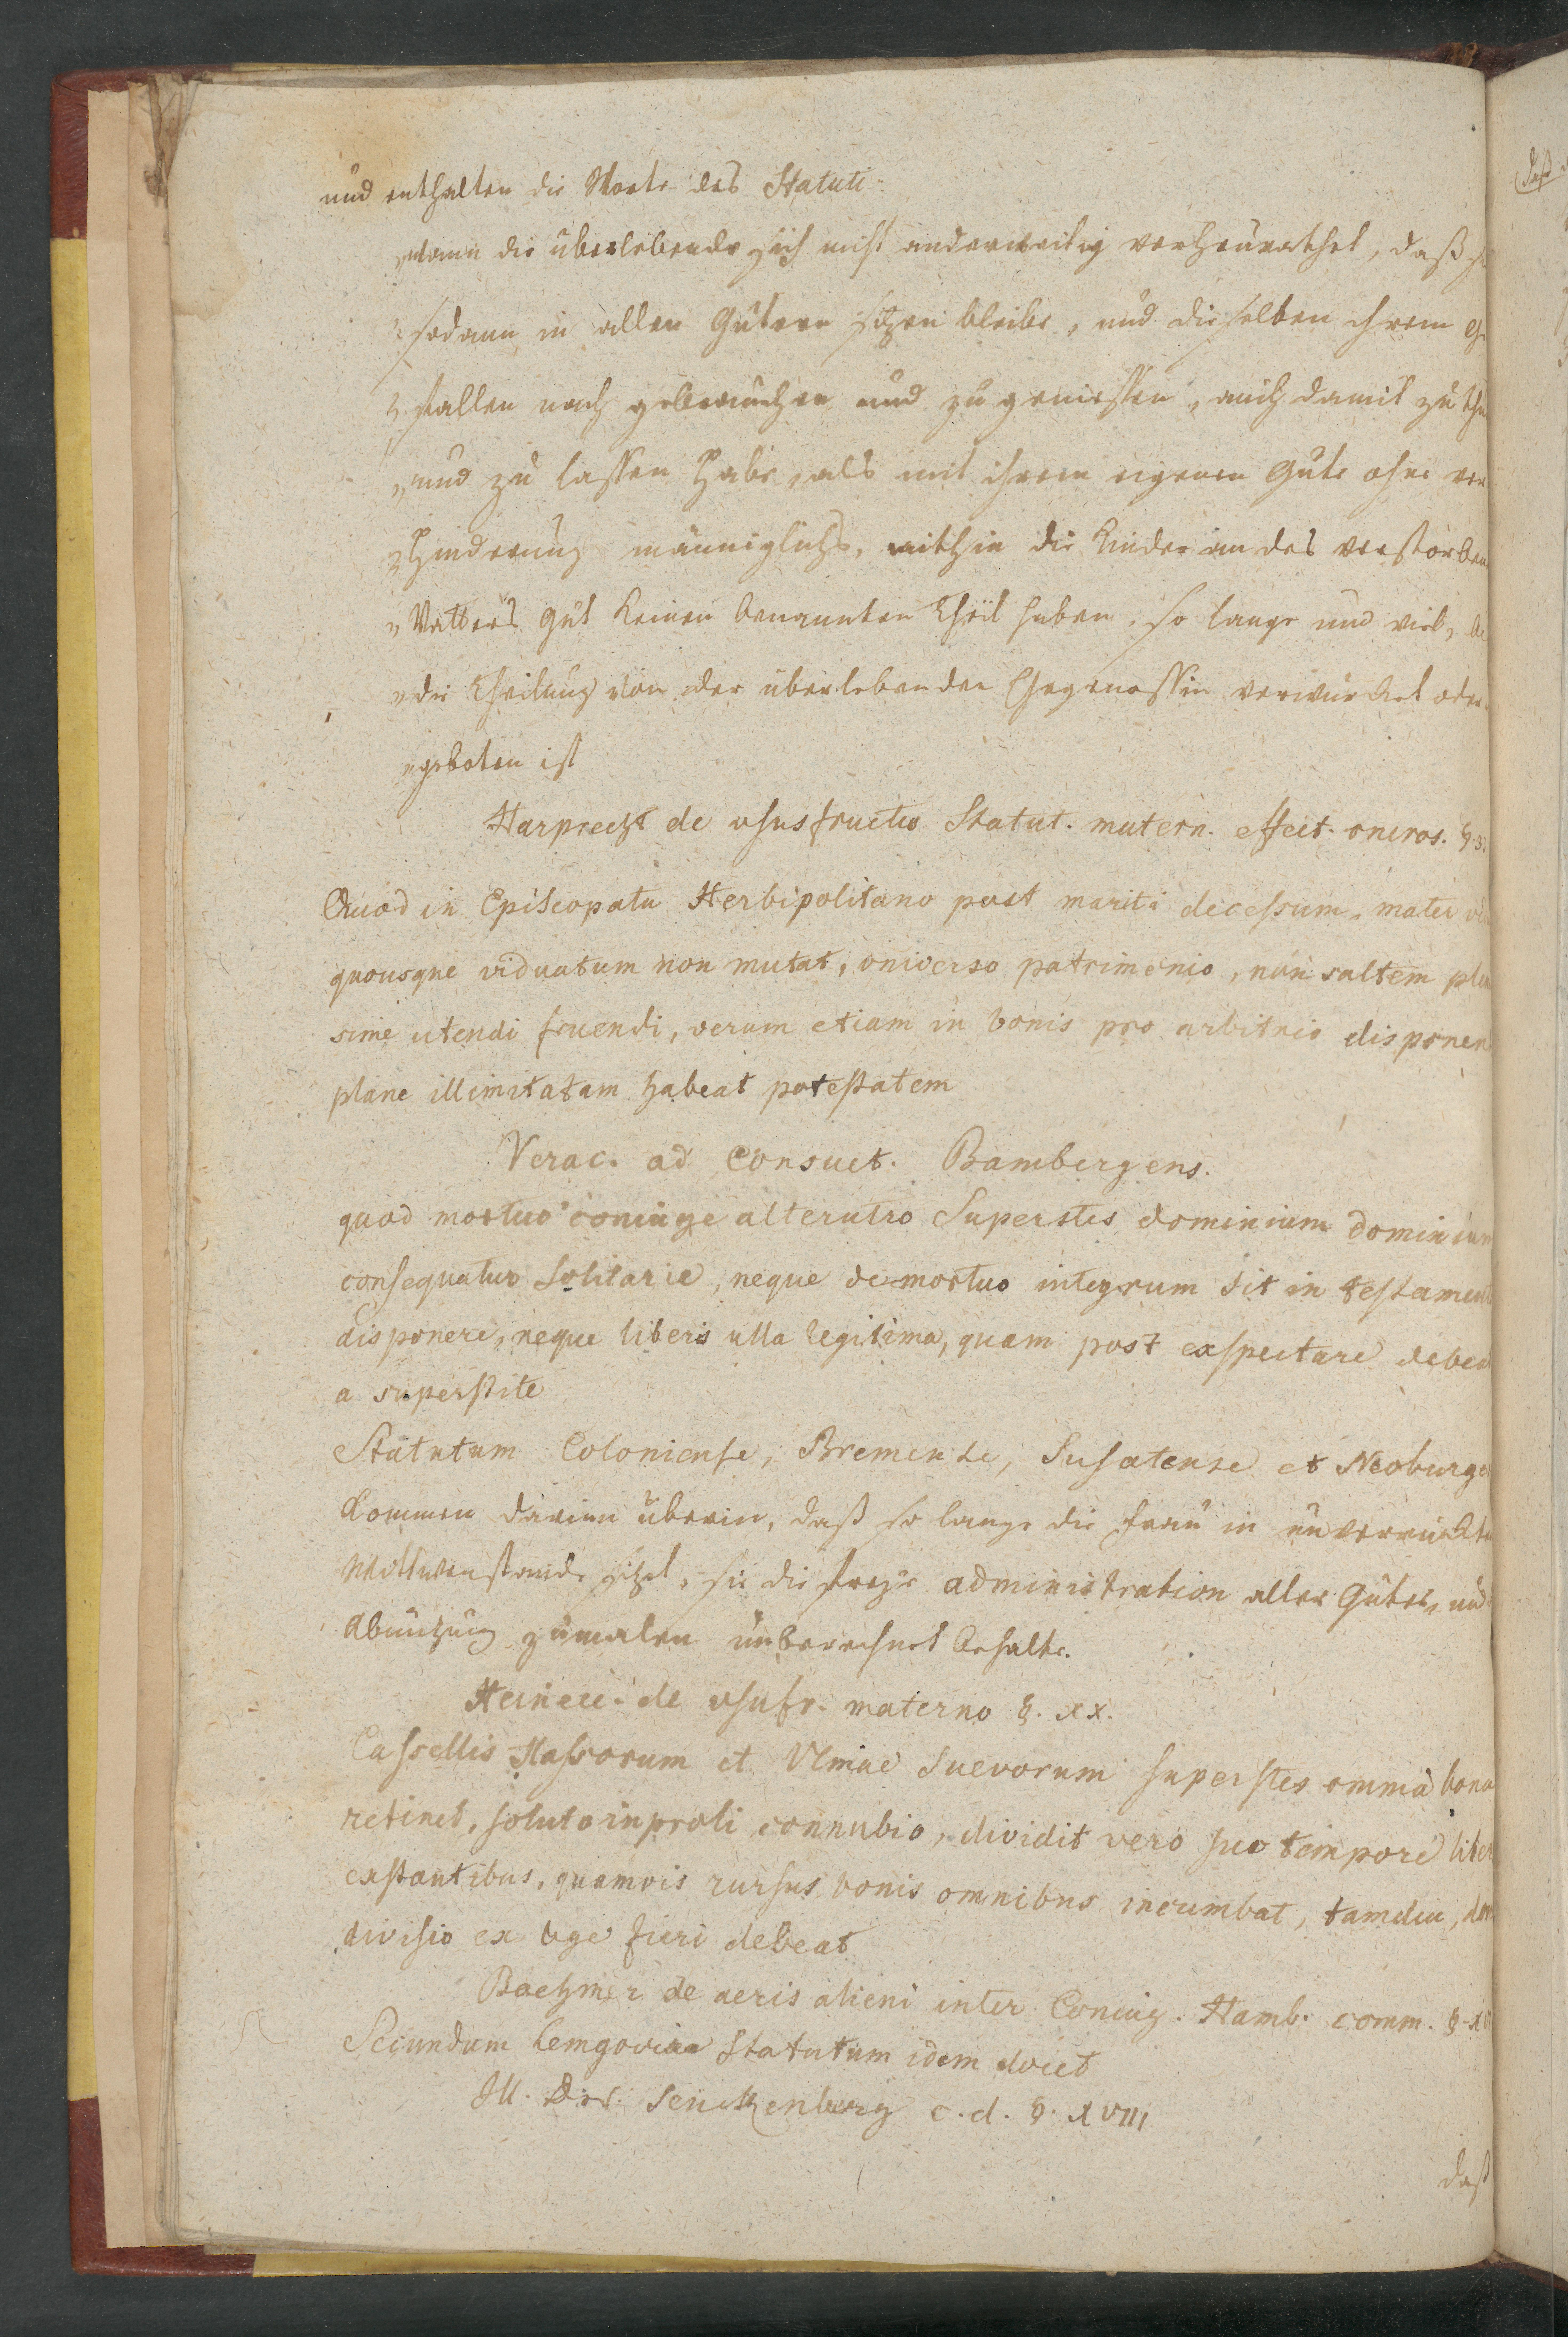 und enthalten die Worte des Statuti:
„wann die überlebende sich nicht anderweitig verheurathet, daß
„sodann in allen Gütern sitzen bleibe, und dieselben ihrem Ge
„fallen nach gebrauchen und zu geniessen, auch damit zu thu
„und zu lassen habe, als mit ihrem eigenen Gute ohne ver
„hinderung männiglichs, mithin die Kinder an des verstorben
„Vatters Gut keinen benannten Theil haben, so lange und viel,
„die Theilung von der überlebenden Ehegenossin verwürcket oder
„geboten ist
Harprecht de usufructu Statut. matern. effect. oneros. §.
Quod in Episcopatu Herbipolitano post mariti decessum, mater
quousque viduatum non mutat, universo patrimonio, non saltem ple
sime utendi fruendi, verum etiam in bonis pro arbitrio disponen
plane illimitatam habeat potestatem
Verac. ad Consuet. Bambergens.
quod mortuo coniuge alterutro Superstes dominium dominium
consequatur solitarie, neque demortuo integrum sit in testament
disponere, neque liberis ulla legitima, quam post exspectare debea
a superstite
Statutum Coloniense, Bremense, Susatense et Neoburge
kommen darinn überein, daß so lange die Frau in unverruckte
Wittwenstande sitzet, sie die freye administration aller Güter, und
Abnutzung zumalen unberechnet behalte.
Heinecc. de usufr. materno §. XX.
Cassellis Hassorum et Ulmae Suevorum superstes omnia bona
retinet, soluto inproli connubio, dividit vero suo tempore liber
exstantibus, quamvis rursus bonis omnibus incumbat, tamdiu, don
divisio ex lege fieri debeat
Boehmer de aeris alieni inter Coniug. Hamb. comm. §.
Secundum Lemgoviae statutum idem docet
Ill. Dn. Senckenberg c. d. §. XVIII
daß